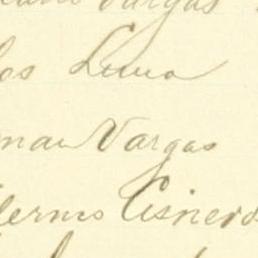 Vargas
os Luna
nan Vargas
llermo Cisneros